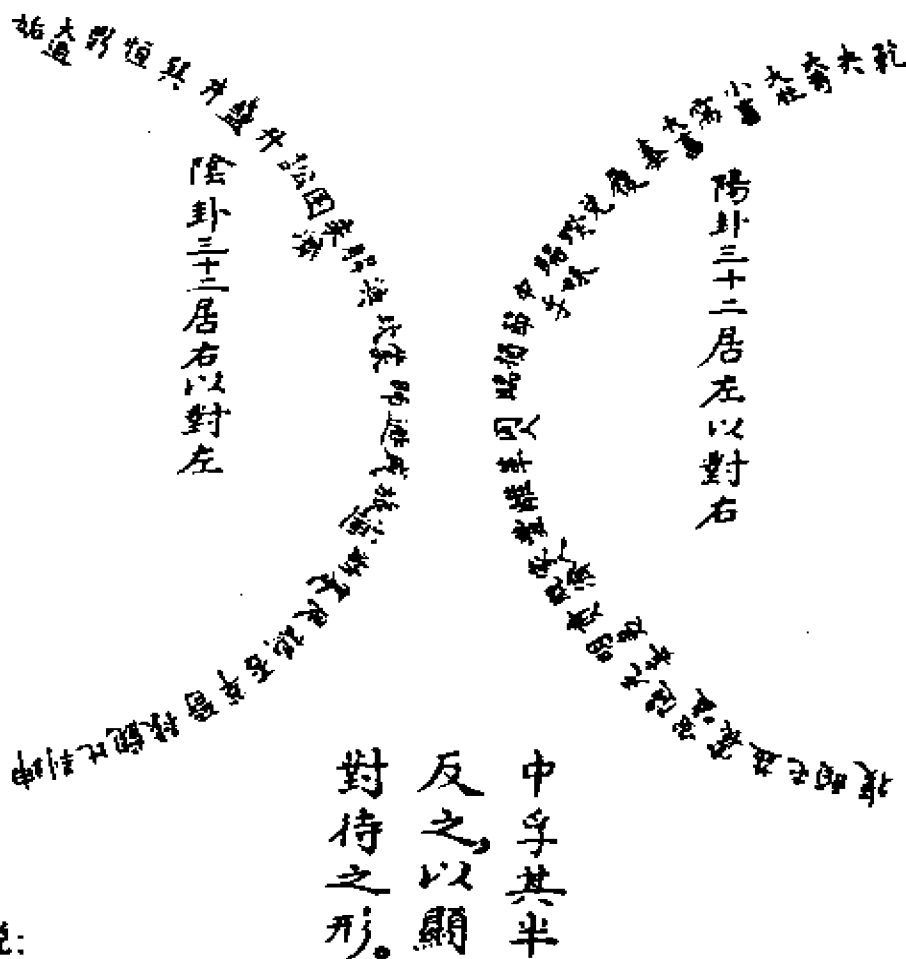 乾夬大有大壯小畜需大畜泰履兌睽歸妹中孚節損臨同人革離豐家人既濟賁明夷无妄隨噬嗑震益屯頤復
陽卦三十二居左以對右
姤大過鼎恒巽井蠱升訟困未濟解渙坎蒙師遯咸旅小過漸蹇艮謙否萃晉豫觀比剝坤
陰卦三十二居右以對左
中孚其半
反之,以顯
對待之形。